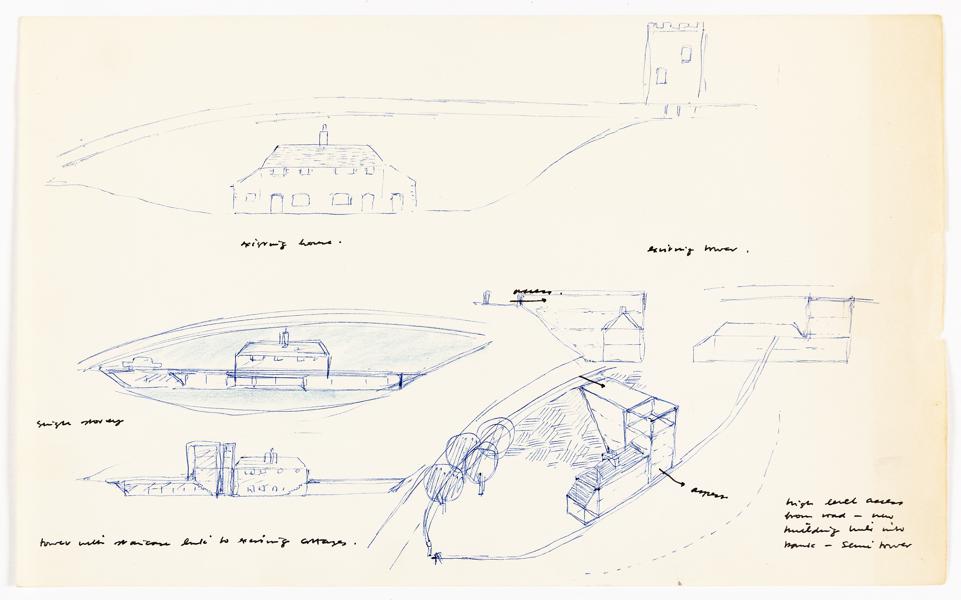 existing house.
existing tower.
access.
single storey
access
tower with staircase link to existing cottages.
high level access
from road - new
building links into
bank - semi tower